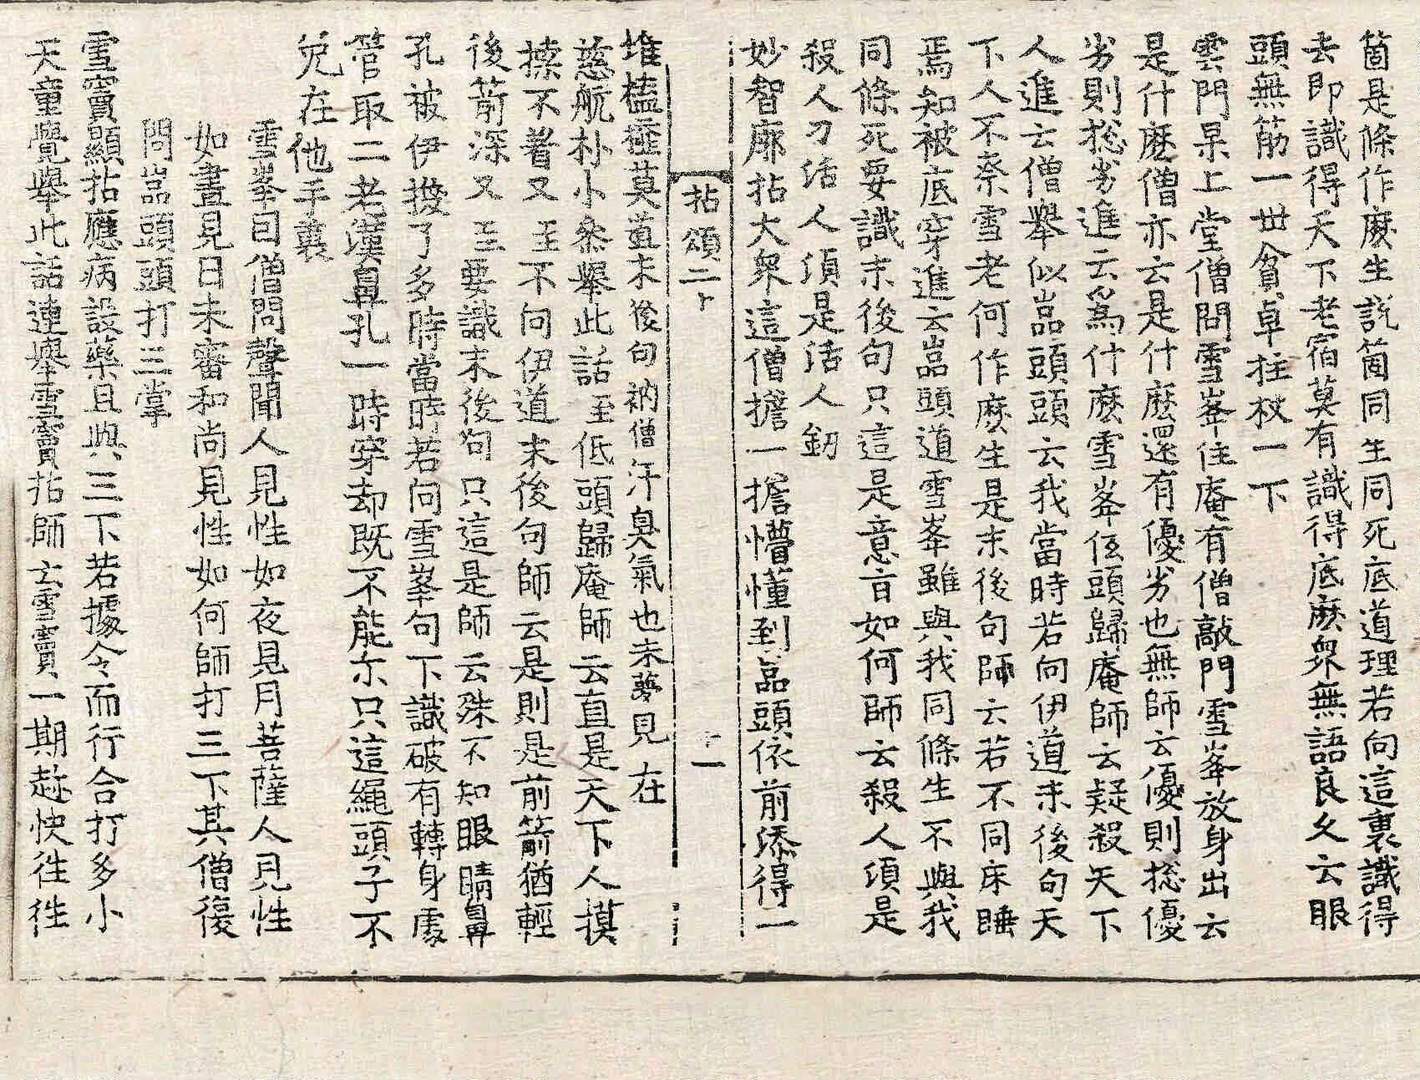 箇是條作麽生說箇同生同死底道理若向這裏識得
去即識得天下老宿莫有識得底麽衆無語良久云眼
頭無筋一世貧卓拄杖一下
雲門杲上堂僧問雪峯住庵有僧敲門雪峯放身出云
是什麽僧亦云是什麽還有優劣也無師云優則揔優
劣則揔劣進云爲什麽雪峯低頭歸庵師云疑殺天下
人進云僧舉似嵓頭頭云我當時若向伊道末後句天
下人不柰雪老何作麽生是末後句師云若不同床睡
焉知被底穿進云嵓頭道雪峯雖與我同條生不與我
同條死要識末後句只這是意旨如何師云殺人須是
殺人刀活人須是活人釰
妙智廓拈大衆這僧擔一擔懵懂到嵓頭依前添得一
拈頌二卜 十一
堆榼𣜂莫道末後句衲僧汗臭氣也未夢見在
慈航朴小叅舉此話至低頭歸庵師云直是天下人摸
𢱢不着又至不向伊道末後句師云是則是前箭猶輕
後箭深又至要識末後句只這是師云殊不知眼睛鼻
孔被伊換了多時當時若向雪峯句下識破有轉身處
管取二老漢鼻孔一時穿却旣不能尒只這繩頭子不
免在他手裏
雪峯因僧問聲聞人見性如夜見月菩薩人見性
如晝見日未審和尚見性如何師打三下其僧復
問嵓頭頭打三掌
雪竇顯拈應病設藥且與三下若據令而行合打多小
天童覺舉此話連舉雪竇拈師云雪竇一期趂快徃徃